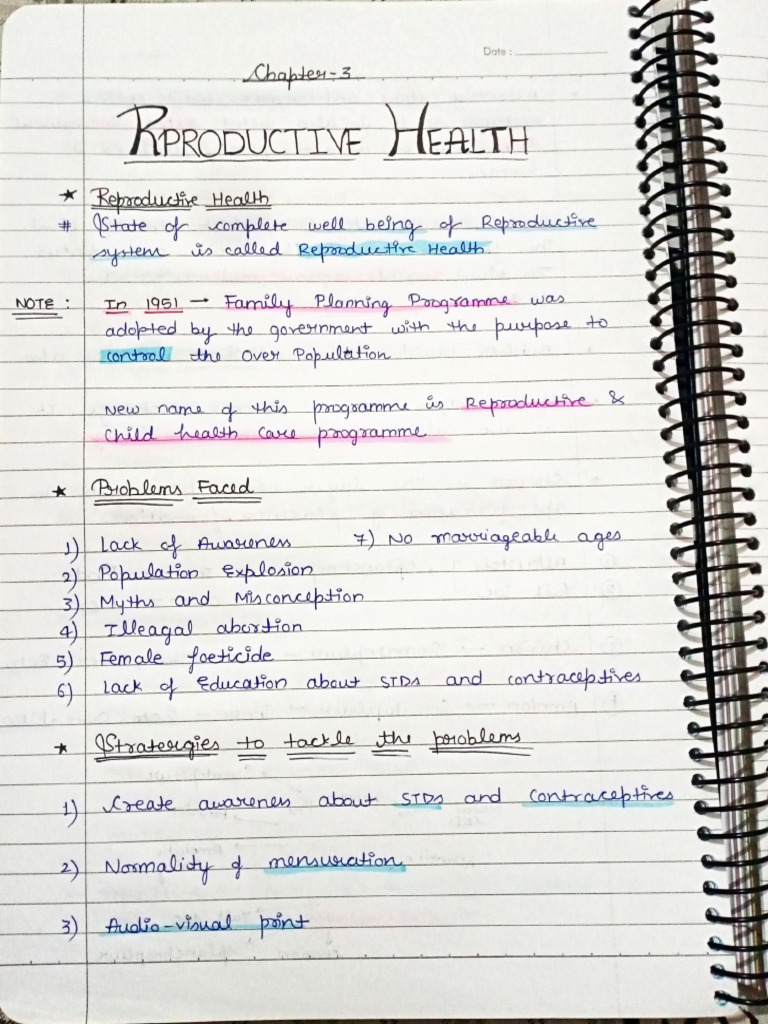 Date :
Chapter-3
RPRODUCTIVE HEALTH
★ Reproductive Health
# State of complete well being of Reproductive
system is called Reproductive Health.
NOTE : In 1951 → Family Planning Programme was
adopted by the government with the purpose to
control the Over Population
New name of this programme is Reproductive &
Child health Care programme
★ Problems Faced
1) Lack of Awareness 7) No marriageable ages
2) Population Explosion
3) Myths and Misconception
4) Illeagal abortion
5) Female foeticide
6) Lack of Education about STDs and contraceptives
★ Stratergies to tackle the problems
1) Create awareness about STDs and contraceptives
2) Normality of mensuration
3) Audio-visual point